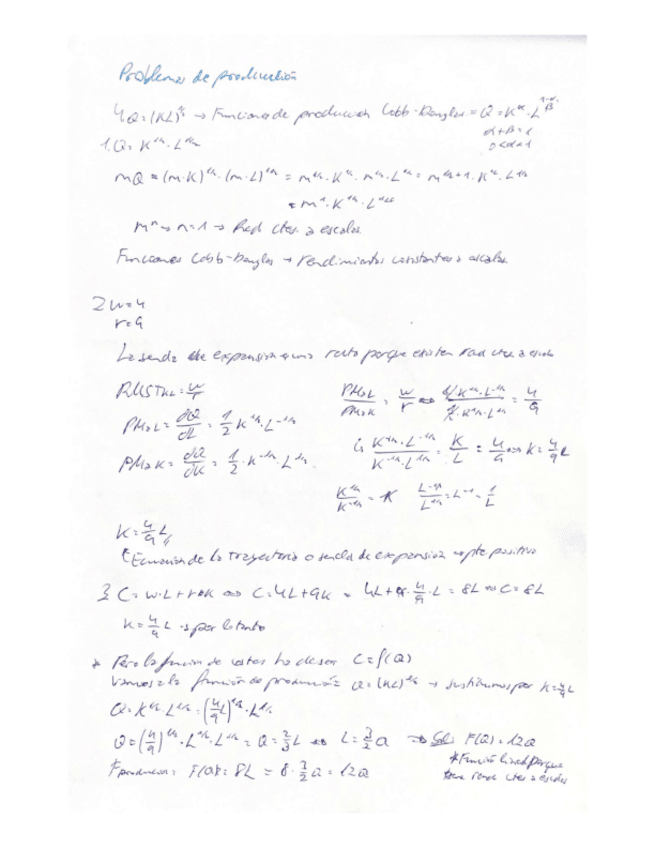 Problemas de producción
4Q=(KL)^½ → Funciones de produccion Cobb-Douglas = Q = K^α · L^β
α+β=1
0<α<1
1. Q = K^½ · L^½
mQ = (m·K)^½ · (m·L)^½ = m^½ · K^½ · m^½ · L^½ = m^½+½ · K^½ · L^½
= m^1 · K^½ · L^½
m^n → n=1 → Rend ctes a escala
Funciones Cobb-Douglas → rendimientos constantes a escala
2 w=4
r=9
La senda de expansion es una recta porque existen rend ctes a escala
RMST_KL = w/r
PMaL = dQ/dL = 1/2 K^½ · L^-½
PMaK = dQ/dK = 1/2 · K^-½ · L^½
PMaL/PMaK = w/r ⇔ (½ K^½ · L^-½)/(½ · K^-½ · L^½) = 4/9
↳ (K^½ · L^-½)/(K^-½ · L^½) = K/L = 4/9 ⇔ K = 4/9 L
K^½/K^-½ = K L^-½/L^½ = L^-1 = 1/L
K = 4/9 L
Ecuacion de la trayectoria o senda de expansion → pte positiva
3 C = w·L + r·K ⇔ C = 4L + 9K = 4L + 9 · 4/9 · L = 8L ⇔ C = 8L
K = 4/9 L → por lo tanto
* Pero la funcion de costes ha de ser C = f(Q)
Vamos a la función de producción: Q = (KL)^½ → sustituimos por K = 4/9 L
Q = K^½ · L^½ = (4/9 L)^½ · L^½
Q = (4/9)^½ · L^½ · L^½ = Q = 2/3 L ⇔ L = 3/2 Q ⇒ Sol: F(Q) = 12Q
*Función lineal porque
tiene rend ctes a escala
F produccion: F(Q) = 8L = 8 · 3/2 Q = 12Q